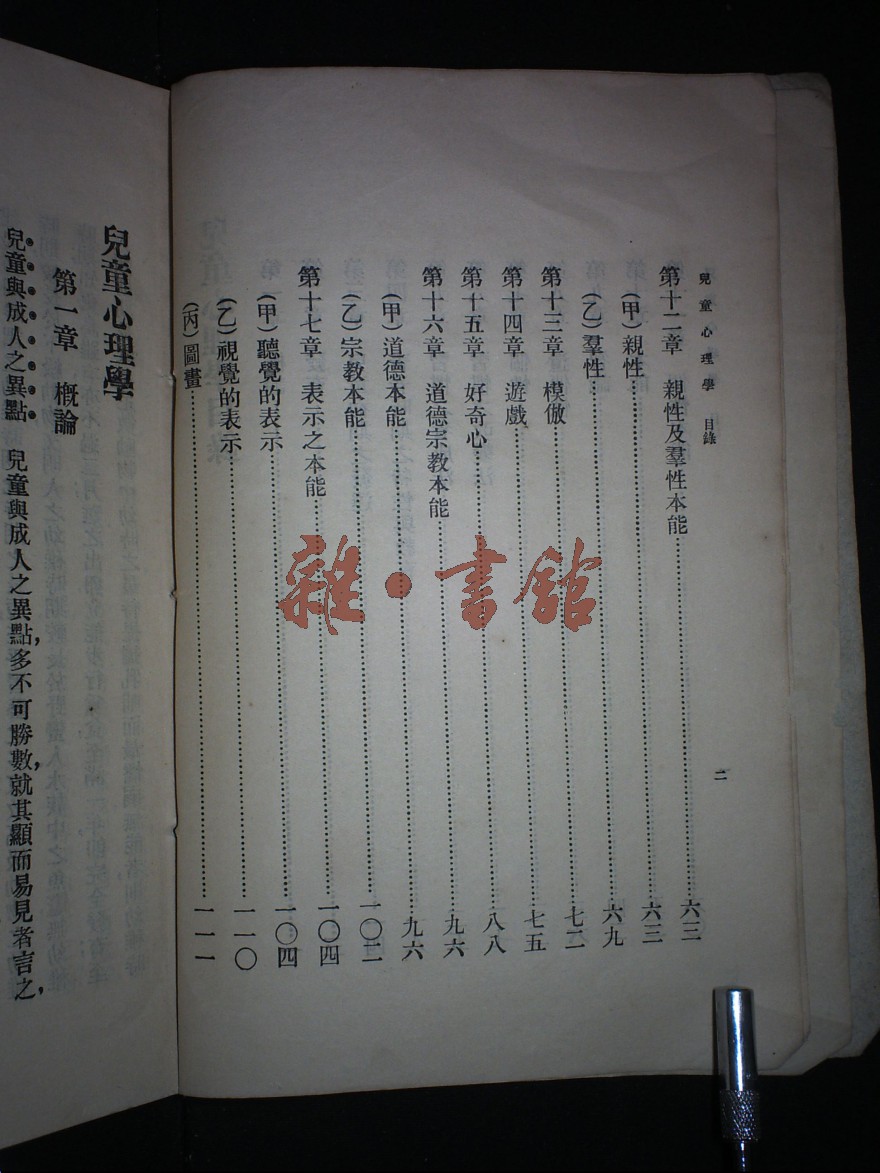 兒童心理學 目錄
二
第十二章 親性及羣性本能……六三
(甲)親性……六三
(乙)羣性……六九
第十三章 模倣……七二
第十四章 遊戲……七五
第十五章 好奇心……八八
第十六章 道德宗教本能……九六
(甲)道德本能……九六
(乙)宗教本能……一〇二
第十七章 表示之本能……一〇四
(甲)聽覺的表示……一〇四
(乙)視覺的表示……一一〇
(丙)圖畫……一一一
兒童心理學
第一章 概論
兒童與成人之異點 兒童與成人之異點,多不可勝數,就其顯而易見者言之,
雜·書館